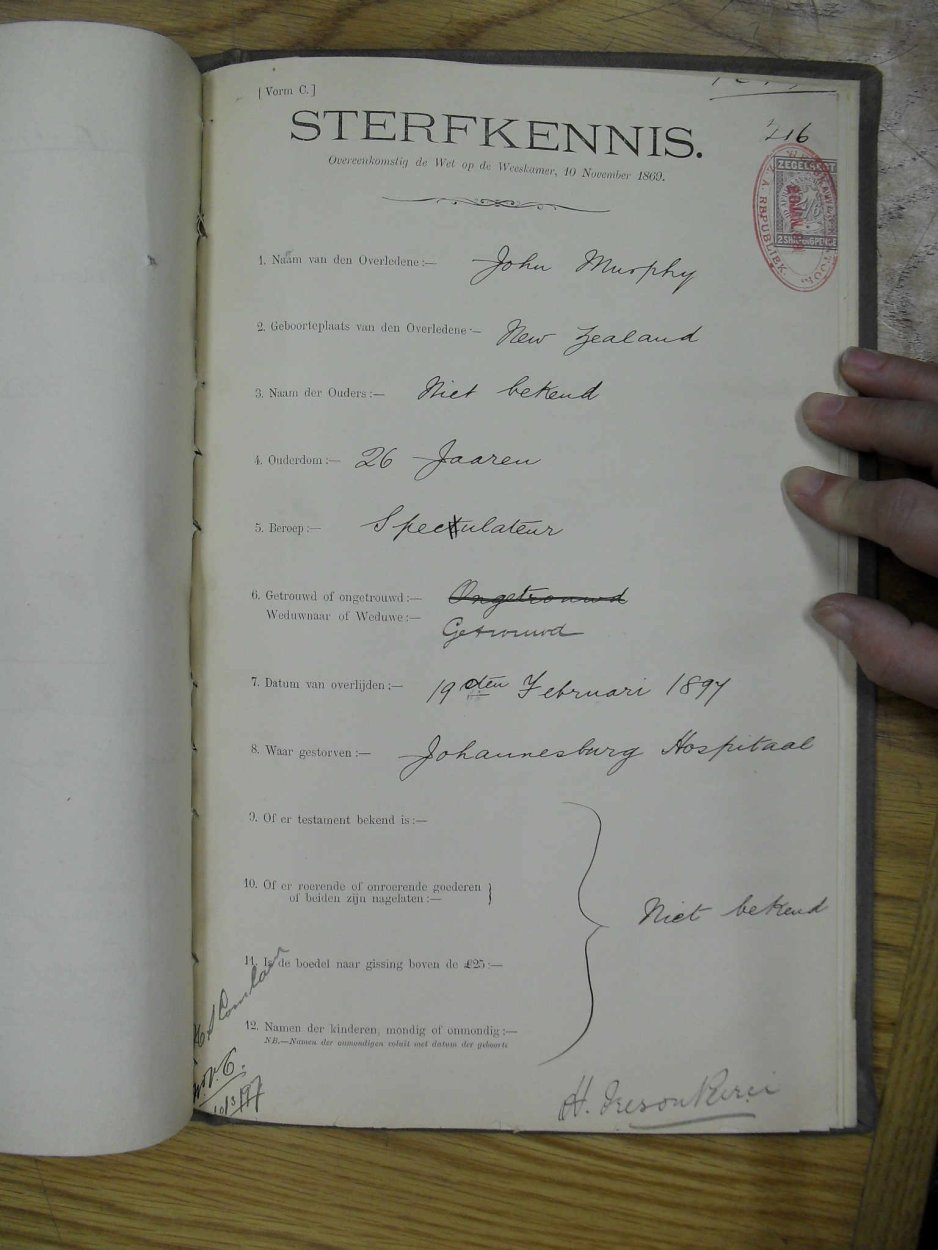 [Vorm C.]
216
STERFKENNIS.
Overeenkomstig de Wet op de Weeskamer, 10 November 1869.
ZEGELRECHT
2 SHILLINGPENCE
Z. A. REPUBLIEK
1. Naam van den Overledene:— John Murphy
2. Geboorteplaats van den Overledene:— New Zealand
3. Naam der Ouders:— Niet bekend
4. Ouderdom:— 26 Jaaren
5. Beroep:— Spekulateur
6. Getrouwd of ongetrouwd:— Ongetrouwd
Weduwnaar of Weduwe:— Getrouwd
7. Datum van overlijden:— 19den Februari 1897
8. Waar gestorven:— Johannesburg Hospitaal
9. Of er testament bekend is:—
10. Of er roerende of onroerende goederen
of beiden zijn nagelaten:—
Niet bekend
11. Is de boedel naar gissing boven de £25:—
12. Namen der kinderen, mondig of onmondig:—
NB.—Namen der onmondigen voluit met datum der geboorte
10/3/97
H.